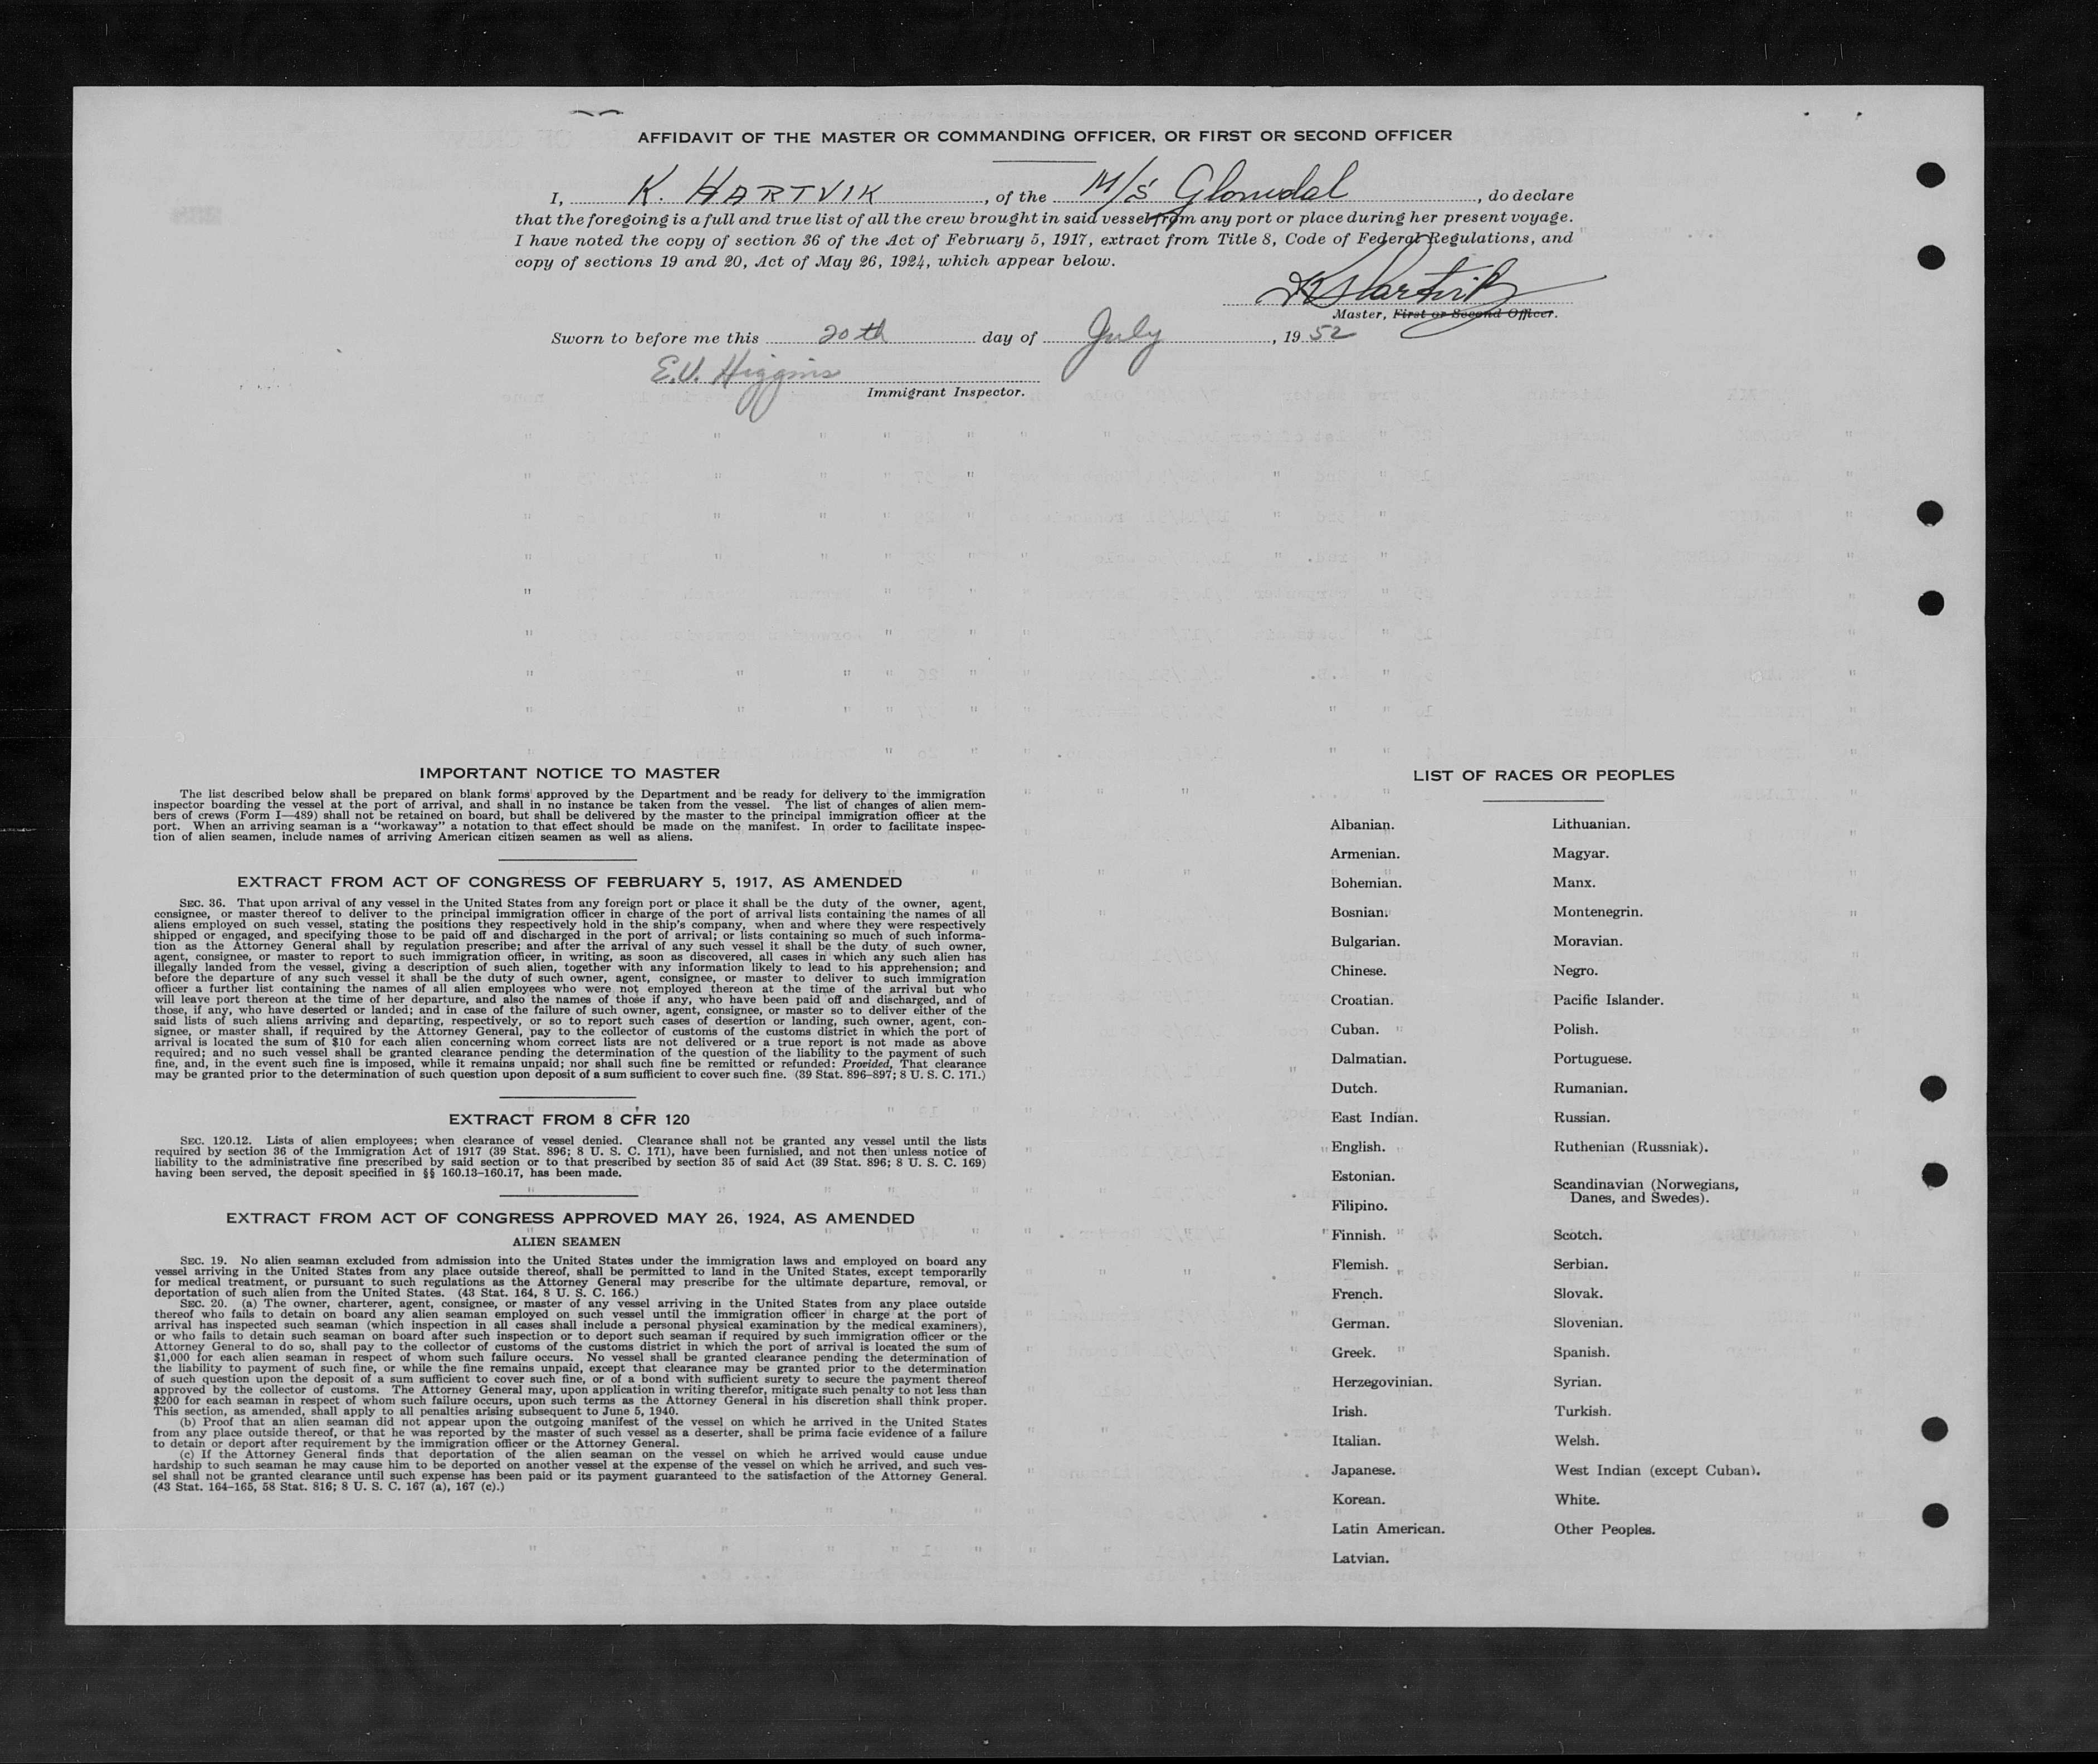 AFFIDAVIT OF THE MASTER OR COMMANDING OFFICER, OR FIRST OR SECOND OFFICER
I, K. HARTVIK, of the M/S, do declare
that the foregoing is a full and true list of all the crew brought in said vessel from any port or place during her present voyage.
I have noted the copy of section 36 of the Act of February 5, 1917, extract from Title 8, Code of Federal Regulations, and
copy of sections 19 and 20, Act of May 26, 1924, which appear below.
K Hartvik
Master, First or Second Officer.
Sworn to before me this 20th day of July, 19 52
E.V. Higgins
Immigrant Inspector.
IMPORTANT NOTICE TO MASTER
The list described below shall be prepared on blank forms approved by the Department and be ready for delivery to the immigration
inspector boarding the vessel at the port of arrival, and shall in no instance be taken from the vessel. The list of changes of alien mem-
bers of crews (Form I—489) shall not be retained on board, but shall be delivered by the master to the principal immigration officer at the
port. When an arriving seaman is a "workaway" a notation to that effect should be made on the manifest. In order to facilitate inspec-
tion of alien seamen, include names of arriving American citizen seamen as well as aliens.
EXTRACT FROM ACT OF CONGRESS OF FEBRUARY 5, 1917, AS AMENDED
SEC. 36. That upon arrival of any vessel in the United States from any foreign port or place it shall be the duty of the owner, agent,
consignee, or master thereof to deliver to the principal immigration officer in charge of the port of arrival lists containing the names of all
aliens employed on such vessel, stating the positions they respectively hold in the ship's company, when and where they were respectively
shipped or engaged, and specifying those to be paid off and discharged in the port of arrival; or lists containing so much of such informa-
tion as the Attorney General shall by regulation prescribe; and after the arrival of any such vessel it shall be the duty of such owner,
agent, consignee, or master to report to such immigration officer, in writing, as soon as discovered, all cases in which any such alien has
illegally landed from the vessel, giving a description of such alien, together with any information likely to lead to his apprehension; and
before the departure of any such vessel it shall be the duty of such owner, agent, consignee, or master to deliver to such immigration
officer a further list containing the names of all alien employees who were not employed thereon at the time of the arrival but who
will leave port thereon at the time of her departure, and also the names of those if any, who have been paid off and discharged, and of
those, if any, who have deserted or landed; and in case of the failure of such owner, agent, consignee, or master so to deliver either of the
said lists of such aliens arriving and departing, respectively, or so to report such cases of desertion or landing, such owner, agent, con-
signee, or master shall, if required by the Attorney General, pay to the collector of customs of the customs district in which the port of
arrival is located the sum of $10 for each alien concerning whom correct lists are not delivered or a true report is not made as above
required; and no such vessel shall be granted clearance pending the determination of the question of the liability to the payment of such
fine, and, in the event such fine is imposed, while it remains unpaid; nor shall such fine be remitted or refunded: Provided, That clearance
may be granted prior to the determination of such question upon deposit of a sum sufficient to cover such fine. (39 Stat. 896–897; 8 U. S. C. 171.)
EXTRACT FROM 8 CFR 120
SEC. 120.12. Lists of alien employees; when clearance of vessel denied. Clearance shall not be granted any vessel until the lists
required by section 36 of the Immigration Act of 1917 (39 Stat. 896; 8 U. S. C. 171), have been furnished, and not then unless notice of
liability to the administrative fine prescribed by said section or to that prescribed by section 35 of said Act (39 Stat. 896; 8 U. S. C. 169)
having been served, the deposit specified in §§ 160.13–160.17, has been made.
EXTRACT FROM ACT OF CONGRESS APPROVED MAY 26, 1924, AS AMENDED
ALIEN SEAMEN
SEC. 19. No alien seaman excluded from admission into the United States under the immigration laws and employed on board any
vessel arriving in the United States from any place outside thereof, shall be permitted to land in the United States, except temporarily
for medical treatment, or pursuant to such regulations as the Attorney General may prescribe for the ultimate departure, removal, or
deportation of such alien from the United States. (43 Stat. 164, 8 U. S. C. 166.)
SEC. 20. (a) The owner, charterer, agent, consignee, or master of any vessel arriving in the United States from any place outside
thereof who fails to detain on board any alien seaman employed on such vessel until the immigration officer in charge at the port of
arrival has inspected such seaman (which inspection in all cases shall include a personal physical examination by the medical examiners),
or who fails to detain such seaman on board after such inspection or to deport such seaman if required by such immigration officer or the
Attorney General to do so, shall pay to the collector of customs of the customs district in which the port of arrival is located the sum of
$1,000 for each alien seaman in respect of whom such failure occurs. No vessel shall be granted clearance pending the determination of
the liability to payment of such fine, or while the fine remains unpaid, except that clearance may be granted prior to the determination
of such question upon the deposit of a sum sufficient to cover such fine, or of a bond with sufficient surety to secure the payment thereof
approved by the collector of customs. The Attorney General may, upon application in writing therefor, mitigate such penalty to not less than
$200 for each seaman in respect of whom such failure occurs, upon such terms as the Attorney General in his discretion shall think proper.
This section, as amended, shall apply to all penalties arising subsequent to June 5, 1940.
(b) Proof that an alien seaman did not appear upon the outgoing manifest of the vessel on which he arrived in the United States
from any place outside thereof, or that he was reported by the master of such vessel as a deserter, shall be prima facie evidence of a failure
to detain or deport after requirement by the immigration officer or the Attorney General.
(c) If the Attorney General finds that deportation of the alien seaman on the vessel on which he arrived would cause undue
hardship to such seaman he may cause him to be deported on another vessel at the expense of the vessel on which he arrived, and such ves-
sel shall not be granted clearance until such expense has been paid or its payment guaranteed to the satisfaction of the Attorney General.
(43 Stat. 164–165, 58 Stat. 816; 8 U. S. C. 167 (a), 167 (c).)
LIST OF RACES OR PEOPLES
Albanian.
Armenian.
Bohemian.
Bosnian.
Bulgarian.
Chinese.
Croatian.
Cuban.
Dalmatian.
Dutch.
East Indian.
English.
Estonian.
Filipino.
Finnish.
Flemish.
French.
German.
Greek.
Herzegovinian.
Irish.
Italian.
Japanese.
Korean.
Latin American.
Latvian.
Lithuanian.
Magyar.
Manx.
Montenegrin.
Moravian.
Negro.
Pacific Islander.
Polish.
Portuguese.
Rumanian.
Russian.
Ruthenian (Russniak).
Scandinavian (Norwegians,
Danes, and Swedes).
Scotch.
Serbian.
Slovak.
Slovenian.
Spanish.
Syrian.
Turkish.
Welsh.
West Indian (except Cuban).
White.
Other Peoples.